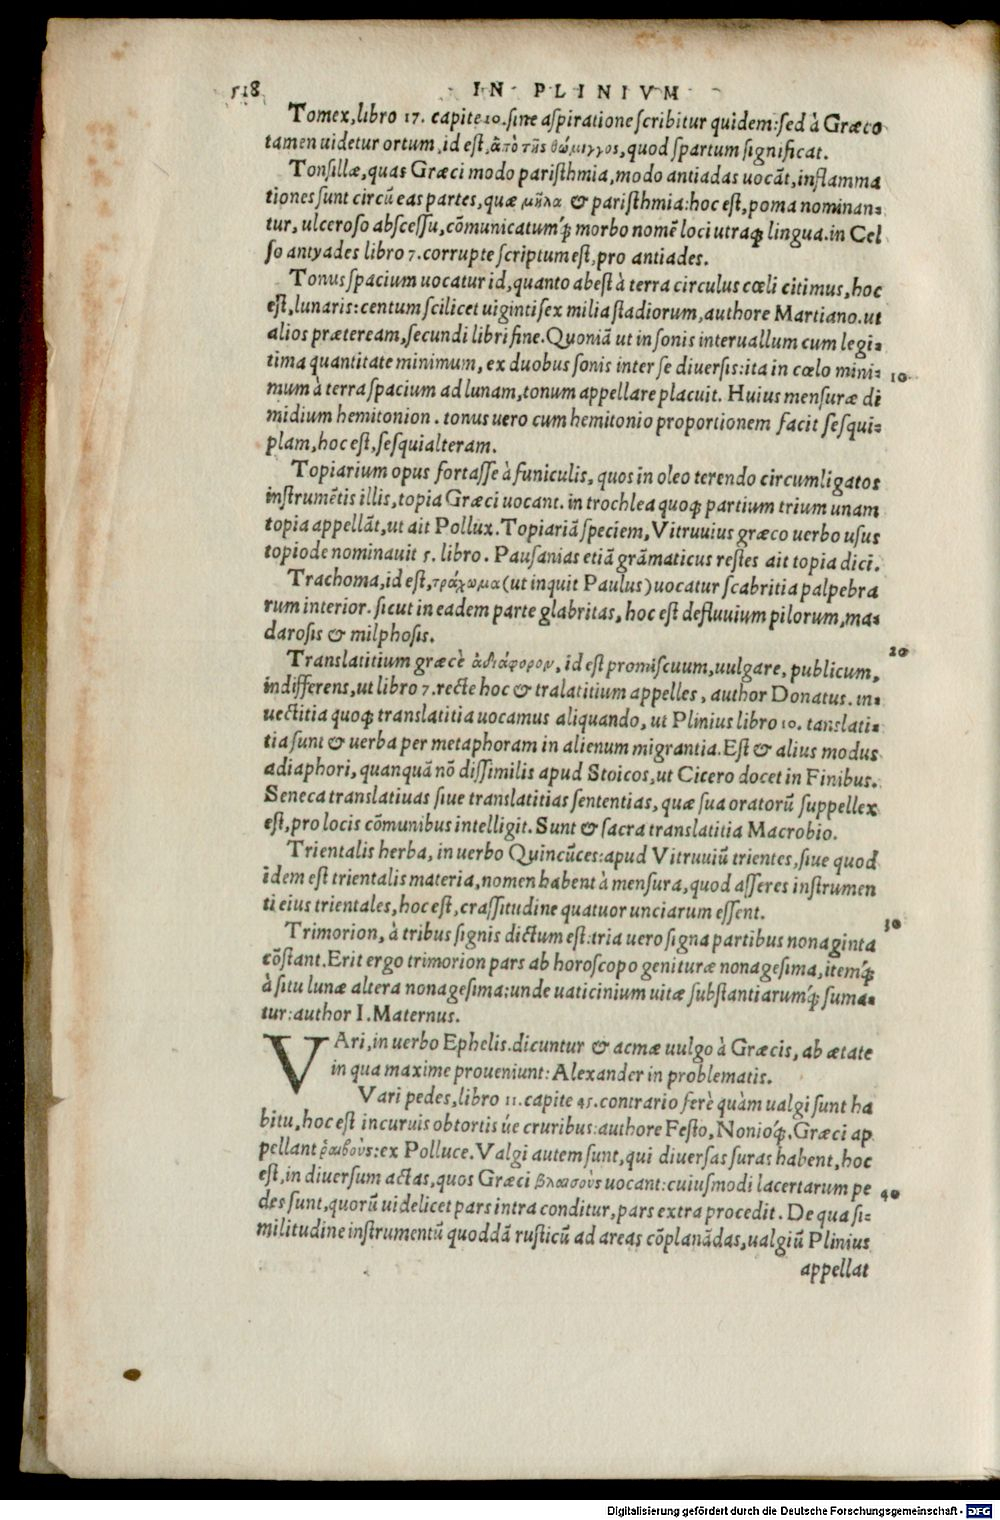 518 IN PLINIVM
Tomex, libro 17. capite 10. sine aspiratione scribitur quidem: sed à Græco
tamen uidetur ortum, id est, ἀπὸ τῆς θώμιγγος, quod spartum significat.
Tonsillæ, quas Græci modo paristhmia, modo antiadas uocãt, inflamma
tiones sunt circũ eas partes, quæ μῆλα & paristhmia: hoc est, poma nominan-
tur, ulceroso abscessu, cõmunicatumq́ꝫ morbo nomẽ loci utraqꝫ lingua. in Cel
so antyades libro 7. corrupte scriptum est, pro antiades.
Tonus spacium uocatur id, quanto abest à terra circulus cœli citimus, hoc
est, lunaris: centum scilicet uigintisex milia stadiorum, authore Martiano. ut
alios præteream, secundi libri fine. Quoniã ut in sonis interuallum cum legi-
tima quantitate minimum, ex duobus sonis inter se diuersis: ita in cœlo mini- 10
mum à terra spacium ad lunam, tonum appellare placuit. Huius mensuræ di
midium hemitonion. tonus uero cum hemitonio proportionem facit sesqui-
plam, hoc est, sesquialteram.
Topiarium opus fortasse à funiculis, quos in oleo terendo circumligatos
instrumẽtis illis, topia Græci uocant. in trochlea quoqꝫ partium trium unam
topia appellãt, ut ait Pollux. Topiariã speciem, Vitruuius græco uerbo usus
topiode nominauit 5. libro. Pausanias etiã grãmaticus restes ait topia dici.
Trachoma, id est, τράχωμα (ut inquit Paulus) uocatur scabritia palpebra
rum interior. sicut in eadem parte glabritas, hoc est defluuium pilorum, ma-
darosis & milphosis.
20
Translatitium græcè ἀδιάφορον, id est promiscuum, uulgare, publicum,
indifferens, ut libro 7. recte hoc & tralatitium appelles, author Donatus. in-
uectitia quoqꝫ translatitia uocamus aliquando, ut Plinius libro 10. tanslati-
tia sunt & uerba per metaphoram in alienum migrantia. Est & alius modus
adiaphori, quanquã nõ dissimilis apud Stoicos, ut Cicero docet in Finibus.
Seneca translatiuas siue translatitias sententias, quæ sua oratorũ suppellex
est, pro locis cõmunibus intelligit. Sunt & sacra translatitia Macrobio.
Trientalis herba, in uerbo Quincũces: apud Vitruuiũ trientes, siue quod
idem est trientalis materia, nomen habent à mensura, quod asseres instrumen
ti eius trientales, hoc est, crassitudine quatuor unciarum essent.
30
Trimorion, à tribus signis dictum est: tria uero signa partibus nonaginta
cõstant. Erit ergo trimorion pars ab horoscopo genituræ nonagesima, itemq́ꝫ
à situ lunæ altera nonagesima: unde uaticinium uitæ substantiarumq́ꝫ suma-
tur: author I. Maternus.
VAri, in uerbo Ephelis. dicuntur & acmæ uulgo à Græcis, ab ætate
in qua maxime proueniunt: Alexander in problematis.
Vari pedes, libro 11. capite 45. contrario ferè quàm ualgi sunt ha
bitu, hoc est incuruis obtortis úe cruribus: authore Festo, Nonioq́ꝫ. Græci ap
pellant ῥαιβοὺς: ex Polluce. Valgi autem sunt, qui diuersas suras habent, hoc
est, in diuersum actas, quos Græci βλαισοὺς uocant: cuiusmodi lacertarum pe 40
des sunt, quorũ uidelicet pars intra conditur, pars extra procedit. De qua si-
militudine instrumentũ quoddã rusticũ ad areas cõplanãdas, ualgiũ Plinius
appellat
Digitalisierung gefördert durch die Deutsche Forschungsgemeinschaft - DFG